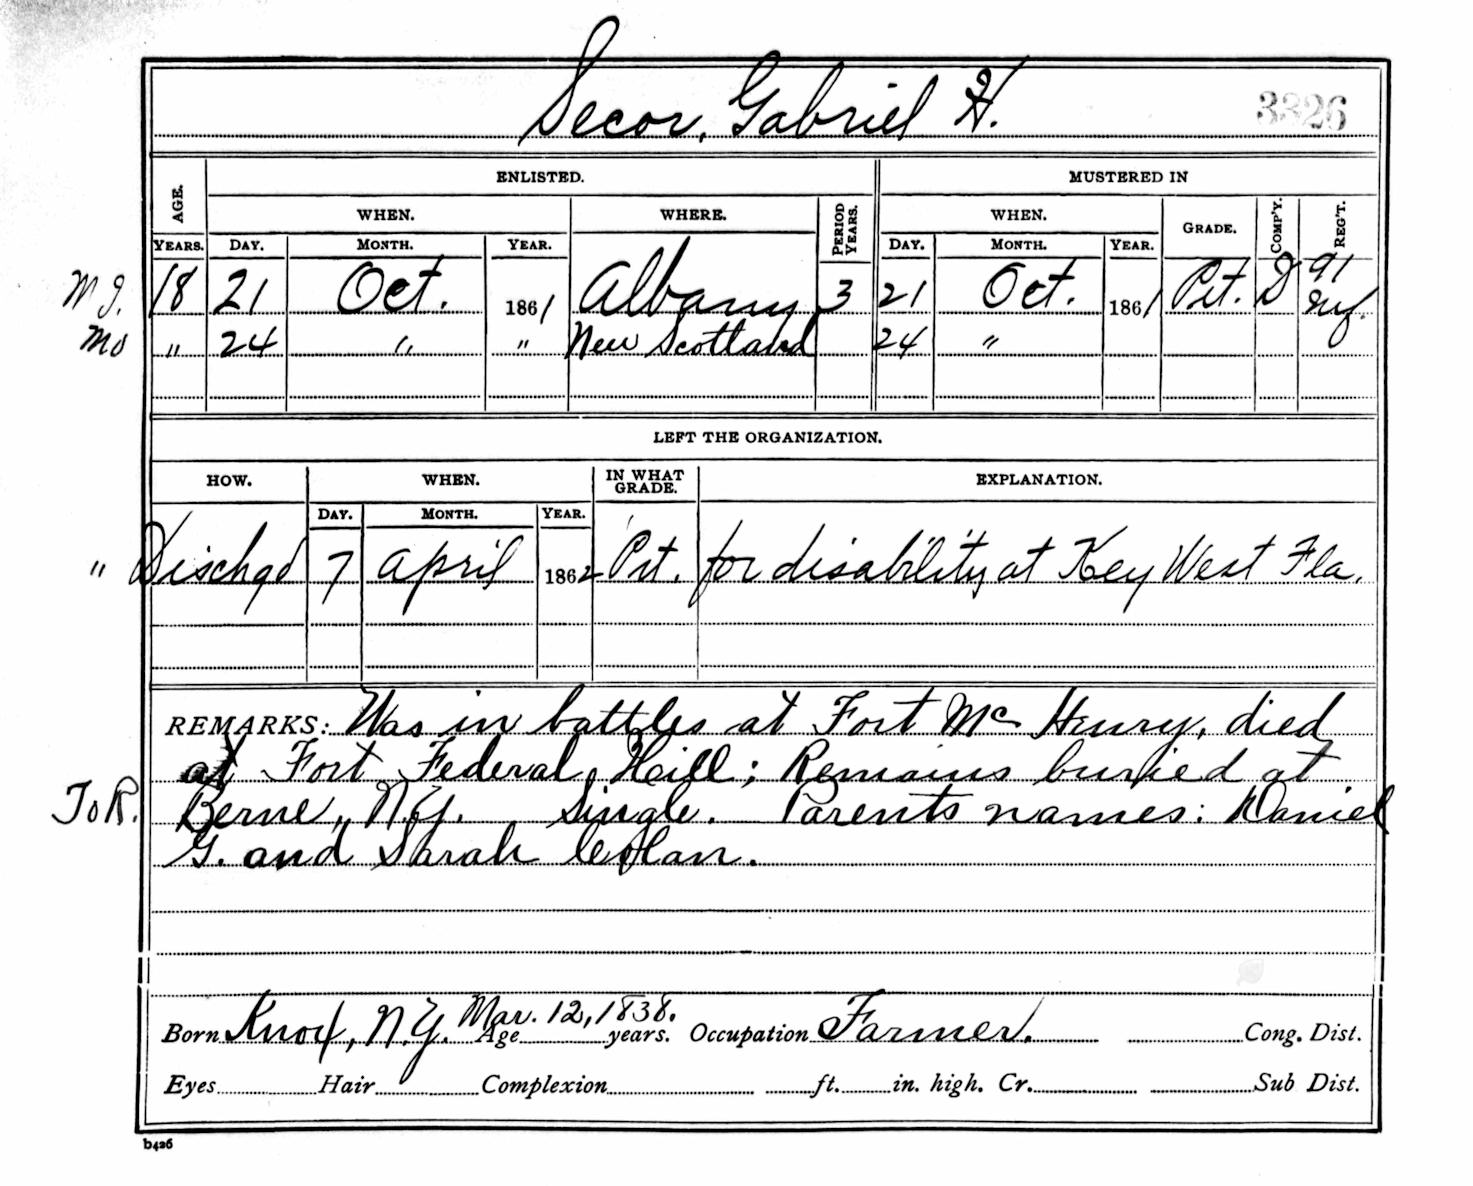 Secor, Gabriel H. 3326
ENLISTED. MUSTERED IN
AGE. WHEN. WHERE. PERIOD YEARS. WHEN. GRADE. COMP'Y. REG'T.
YEARS. DAY. MONTH. YEAR. DAY. MONTH. YEAR.
18 21 Oct. 1861 Albany 3 21 Oct. 1861 Pvt. D 91 Inf.
Mo " 24 " " New Scotland 24 "
LEFT THE ORGANIZATION.
HOW. WHEN. IN WHAT GRADE. EXPLANATION.
DAY. MONTH. YEAR.
" Dischgd 7 April 1862 Pvt. for disability at Key West Fla.
REMARKS: Was in battles at Fort Mc Henry, died
at Fort Federal Hill; Remains buried at
ToR. Berne, N.Y. Single. Parents names: Daniel
G. and Sarah
Born Knox, N.Y. Mar. 12, 1838. Age years. Occupation Farmer. Cong. Dist.
Eyes Hair Complexion ft. in. high. Cr. Sub Dist.
b426